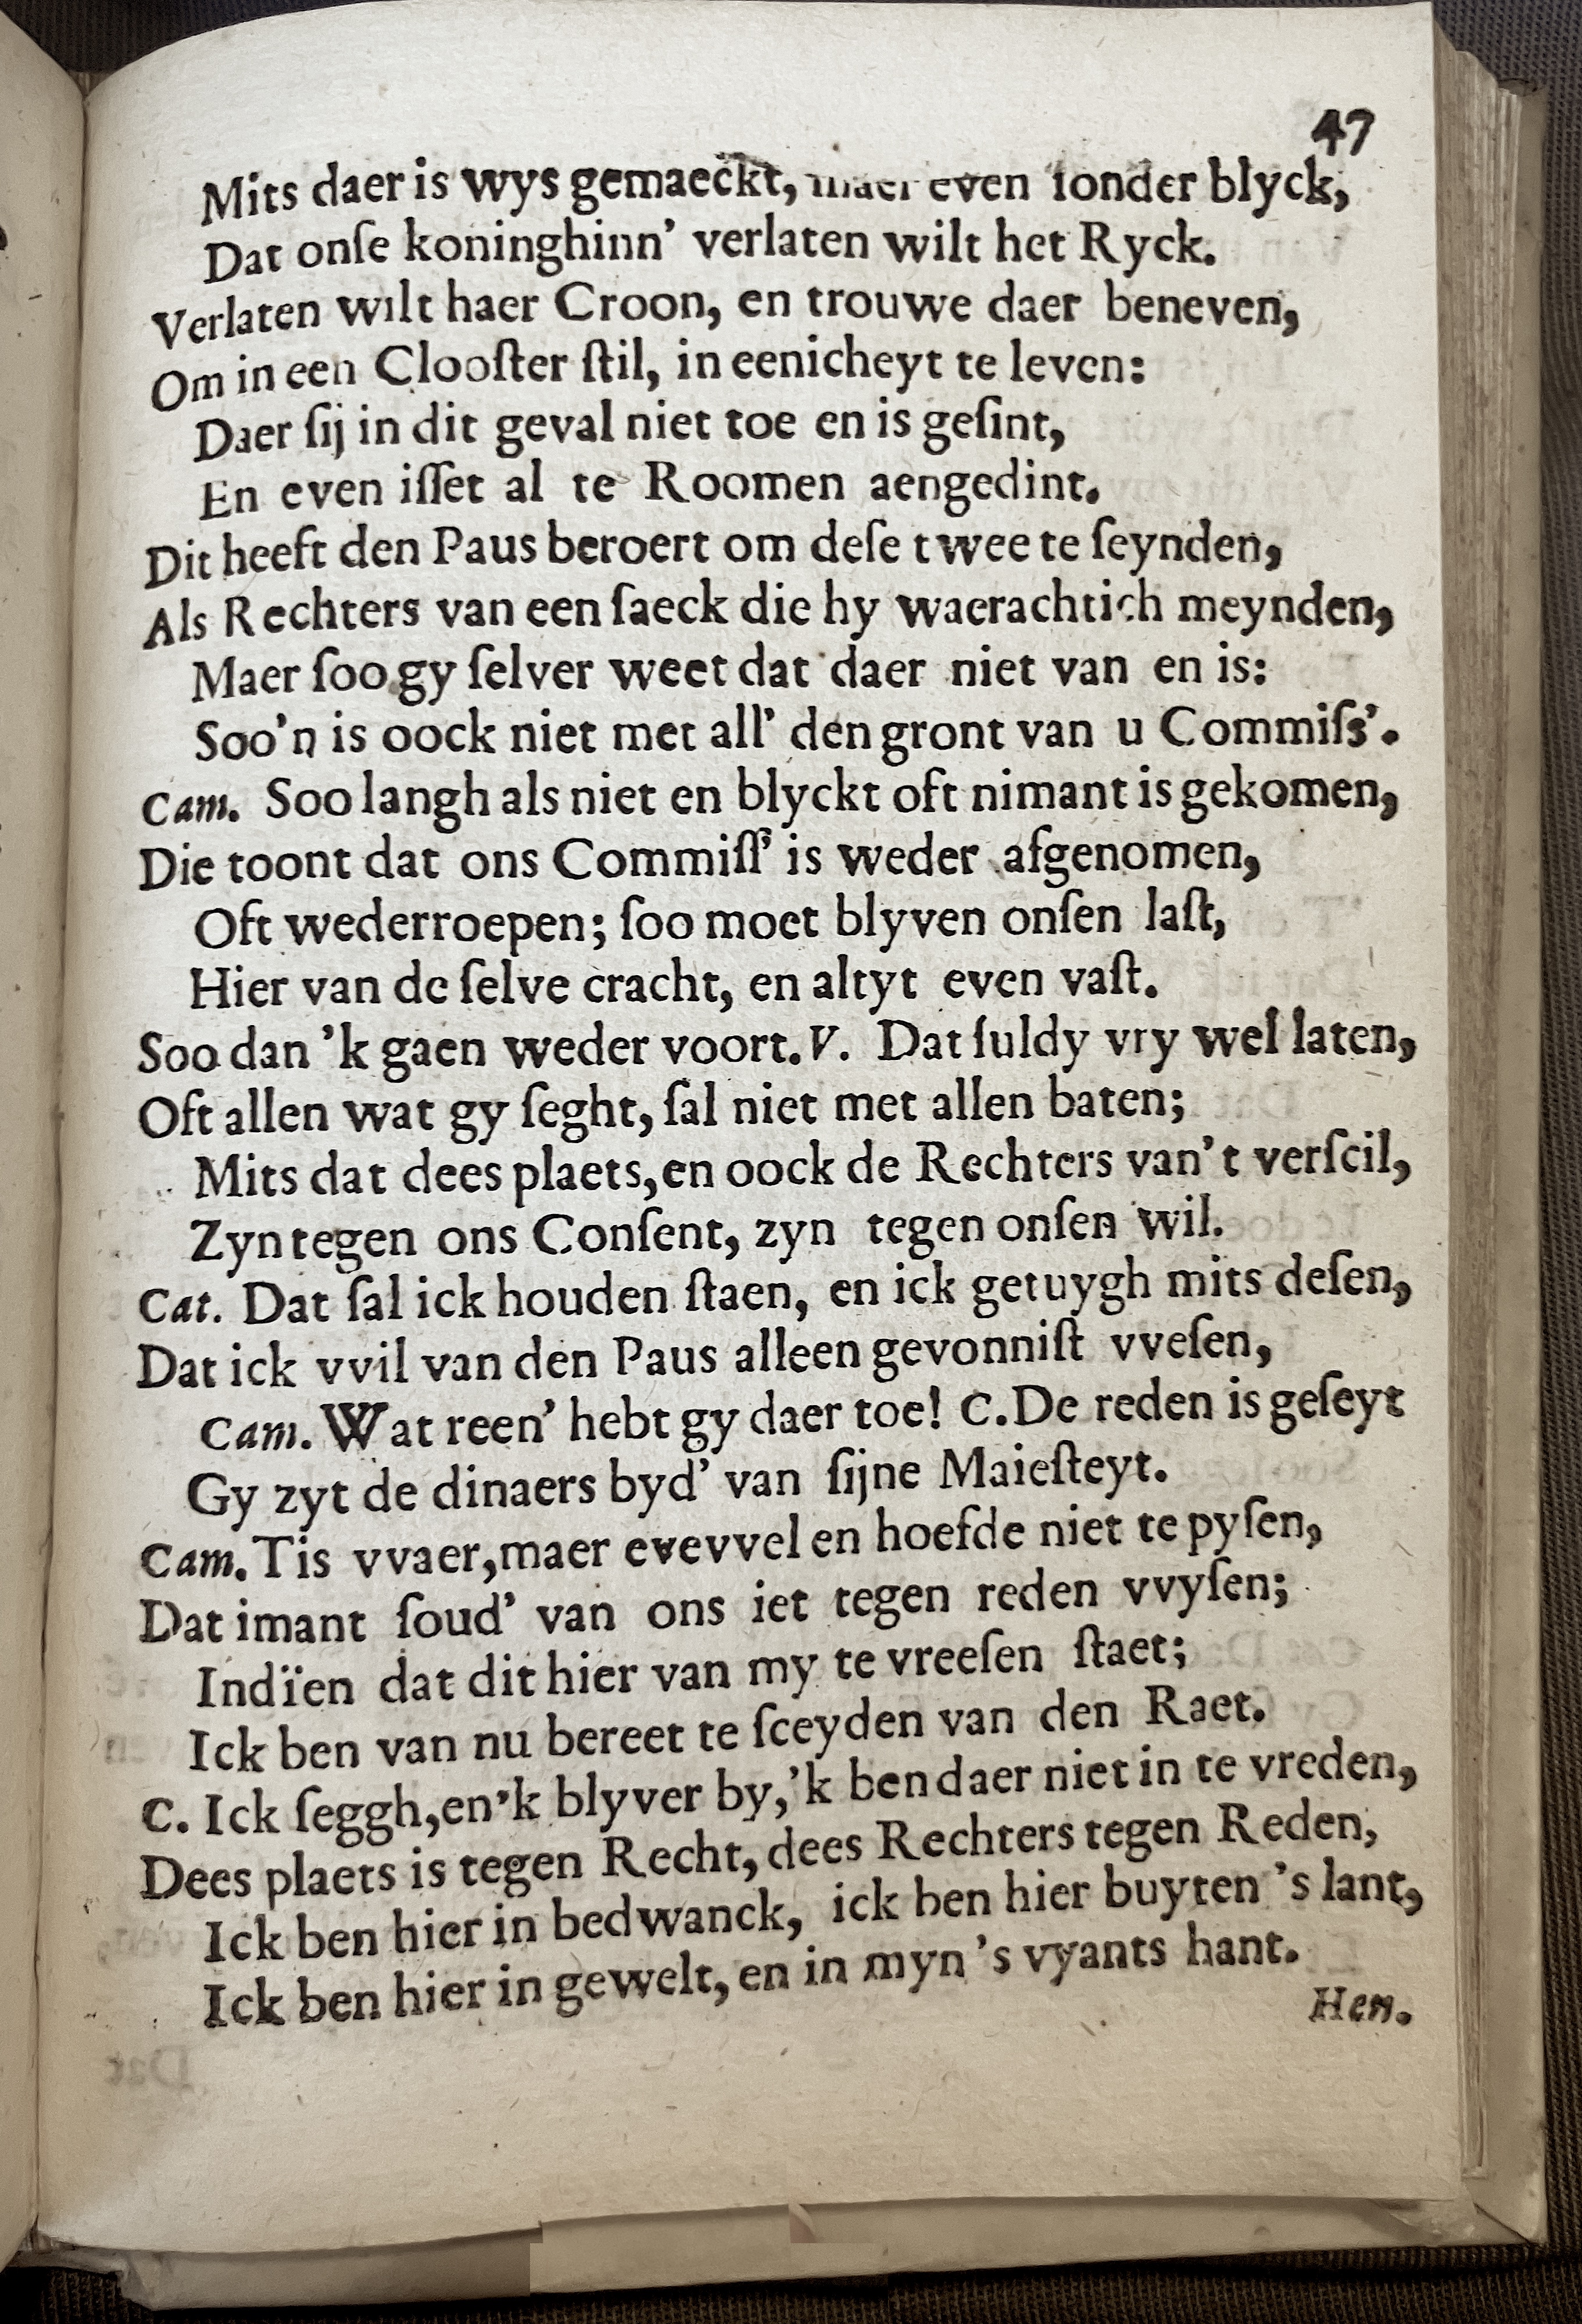 47
Mits daer is wys gemaeckt, maer even ſonder blyck,
Dat onſe koninghinn' verlaten wilt het Ryck.
Verlaten wilt haer Croon, en trouwe daer beneven,
Om in een Clooſter ſtil, in eenicheyt te leven:
Daer ſij in dit geval niet toe en is geſint,
En even iſſet al te Roomen aengedint.
Dit heeft den Paus beroert om deſe twee te ſeynden,
Als Rechters van een ſaeck die hy waerachtich meynden,
Maer ſoo gy ſelver weet dat daer niet van en is:
Soo'n is oock niet met all' den gront van u Commiſs'.
Cam. Soo langh als niet en blyckt oft nimant is gekomen,
Die toont dat ons Commiſſ' is weder afgenomen,
Oft wederroepen; ſoo moet blyven onſen laſt,
Hier van de ſelve cracht, en altyt even vaſt.
Soo dan 'k gaen weder voort. V. Dat ſuldy vry wel laten,
Oft allen wat gy ſeght, ſal niet met allen baten;
Mits dat dees plaets, en oock de Rechters van't verſcil,
Zyn tegen ons Conſent, zyn tegen onſen wil.
Cat. Dat ſal ick houden ſtaen, en ick getuygh mits deſen,
Dat ick vvil van den Paus alleen gevonniſt vveſen,
Cam. Wat reen' hebt gy daer toe! C. De reden is geſeyt
Gy zyt de dinaers byd' van ſijne Maieſteyt.
Cam. Tis vvaer, maer evevvel en hoefde niet te pyſen,
Dat imant ſoud' van ons iet tegen reden vvyſen;
Indïen dat dit hier van my te vreeſen ſtaet;
Ick ben van nu bereet te ſceyden van den Raet.
C. Ick ſeggh, en'k blyver by, 'k ben daer niet in te vreden,
Dees plaets is tegen Recht, dees Rechters tegen Reden,
Ick ben hier in bedwanck, ick ben hier buyten 's lant,
Ick ben hier in gewelt, en in myn 's vyants hant.
Hen.